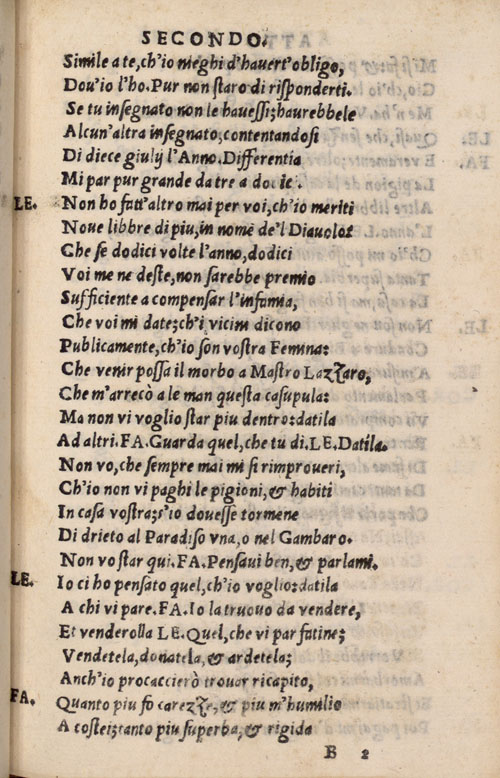 SECONDO.
Simile a te, ch'io nieghi d'hauert'obligo,
Dou'io l'ho. Pur non staro di risponderti.
Se tu insegnato non le hauessi; haurebbele
Alcun'altra insegnato; contentandosi
Di diece giulij l'Anno. Differentia
Mi par pur grande da tre a dodic.
LE. Non ho fatt'altro mai per voi, ch'io meriti
Noue libbre di piu, in nome de'l Diauolo?
Che se dodici volte l'anno, dodici
Voi me ne deste, non sarebbe premio
Sufficiente a compensar l'infamia,
Che voi mi date; ch'i vicini dicono
Publicamente, ch'io son vostra Femina:
Che venir possa il morbo a Mastro Lazzaro,
Che m'arrecò a le man questa casupula:
Ma non vi voglio star piu dentro: datila
Ad altri. FA. Guarda quel, che tu di. LE. Datila.
Non vo, che sempre mai mi si rimproueri,
Ch'io non vi paghi le pigioni, & habiti
In casa vostra; s'io douesse tormene
Di drieto al Paradiso vna, o nel Gambaro.
Non vo star qui. FA. Pensaui ben, & parlami.
LE. Io ci ho pensato quel, ch'io voglio: datila
A chi vi pare. FA. Io la truouo da vendere,
Et venderolla LE. Quel, che vi par fatine;
Vendetela, donatela, & ardetela;
Anch'io procaccierò trouar ricapito,
FA. Quanto piu fo carezze, & piu m'humilio
A costei; tanto piu superba, & rigida
B 2